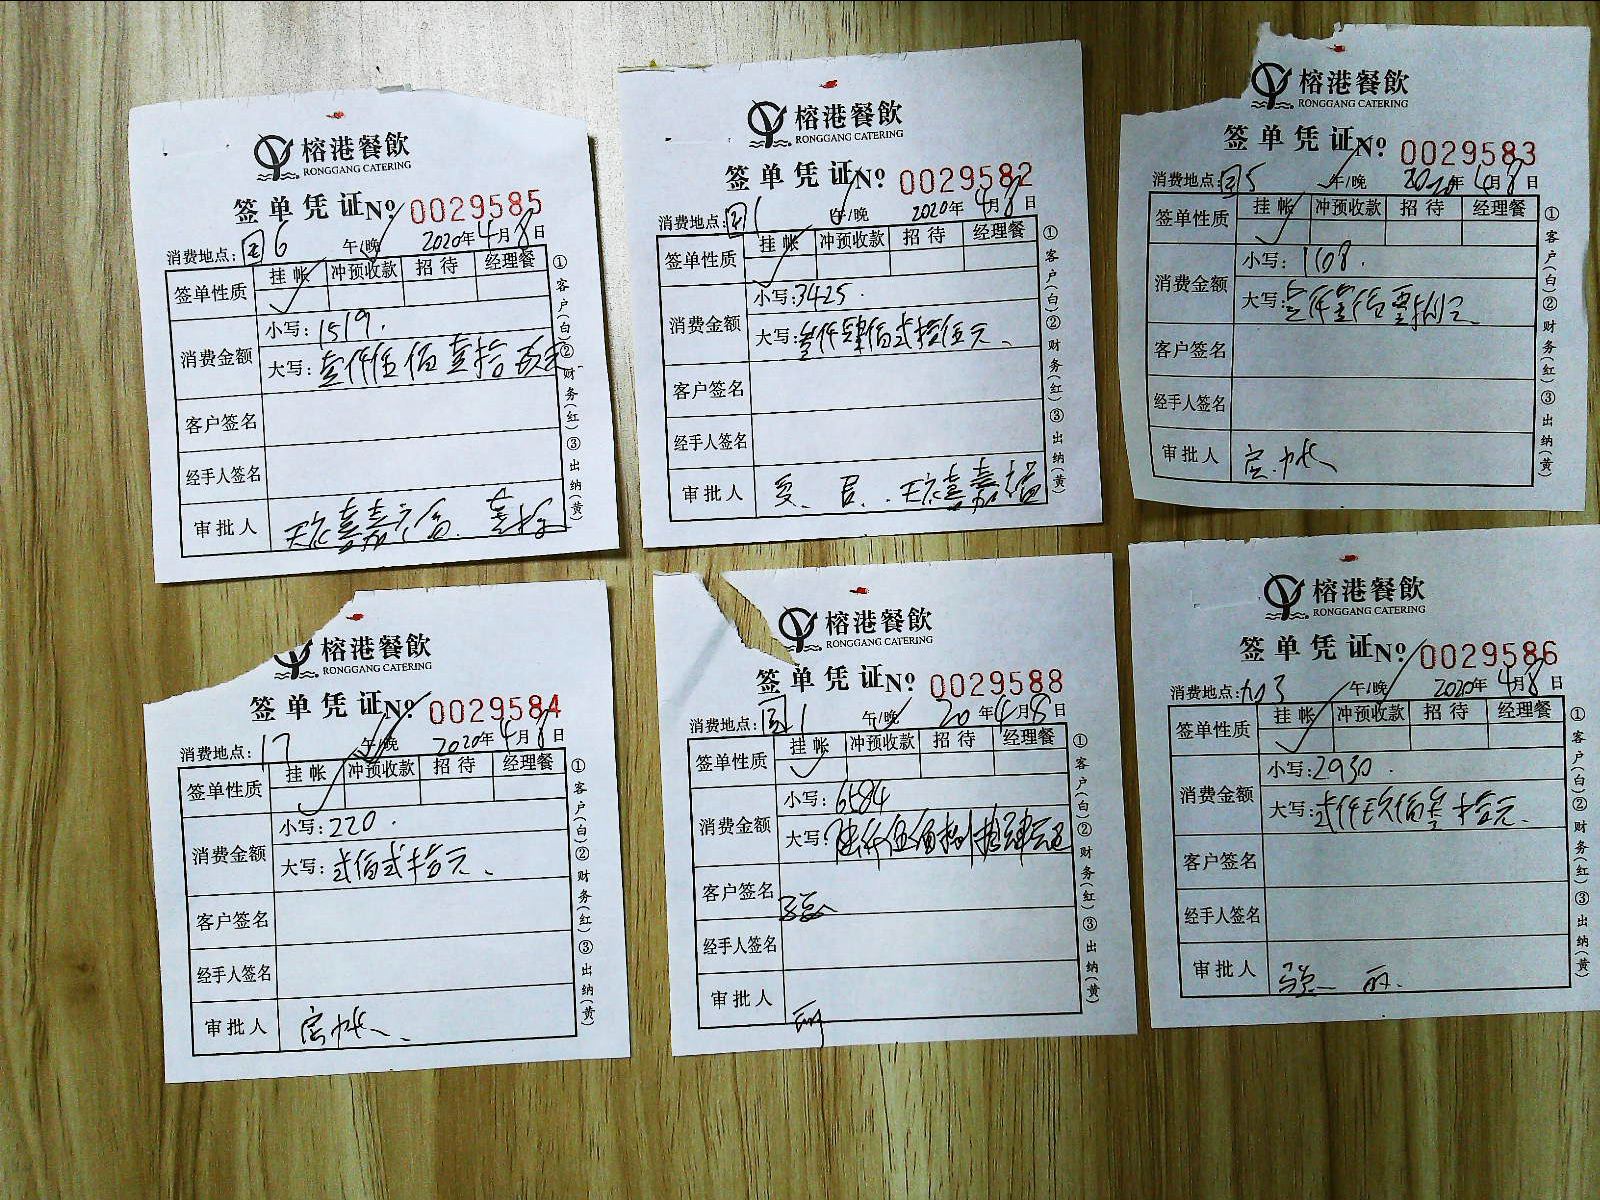 榕港餐飲
RONGGANG CATERING
签单凭证 № 0029585
消费地点: 国6 午/晚 2020年4月8日
签单性质 挂帐 冲预收款 招待 经理餐
消费金额 小写: 1519.
大写: 壹仟伍佰壹拾玖元
客户签名
经手人签名
审批人
①客户(白)②财务(红)③出纳(黄)
榕港餐飲
RONGGANG CATERING
签单凭证 № 0029582
消费地点: 国1 午/晚 2020年4月8日
签单性质 挂帐 冲预收款 招待 经理餐
消费金额 小写: 3425.
大写: 叁仟肆佰式拾伍元、
客户签名
经手人签名
审批人
①客户(白)②财务(红)③出纳(黄)
榕港餐飲
RONGGANG CATERING
签单凭证 № 0029583
消费地点: 国5 午/晚 2020年4月8日
签单性质 挂帐 冲预收款 招待 经理餐
消费金额 小写: 1108.
大写: 壹仟壹佰零捌元
客户签名
经手人签名
审批人
①客户(白)②财务(红)③出纳(黄)
榕港餐飲
RONGGANG CATERING
签单凭证 № 0029584
消费地点: 17 午/晚 2020年4月8日
签单性质 挂帐 冲预收款 招待 经理餐
消费金额 小写: 220.
大写: 式佰式拾元、
客户签名
经手人签名
审批人
①客户(白)②财务(红)③出纳(黄)
榕港餐飲
RONGGANG CATERING
签单凭证 № 0029588
消费地点: 国1 午/晚 20年4月8日
签单性质 挂帐 冲预收款 招待 经理餐
消费金额 小写: 6584
大写: 陆仟伍佰捌拾肆元
客户签名
经手人签名
审批人
①客户(白)②财务(红)③出纳(黄)
榕港餐飲
RONGGANG CATERING
签单凭证 № 0029586
消费地点: 加3 午/晚 2020年4月8日
签单性质 挂帐 冲预收款 招待 经理餐
消费金额 小写: 2930.
大写: 式仟玖佰叁拾元、
客户签名
经手人签名
审批人
①客户(白)②财务(红)③出纳(黄)